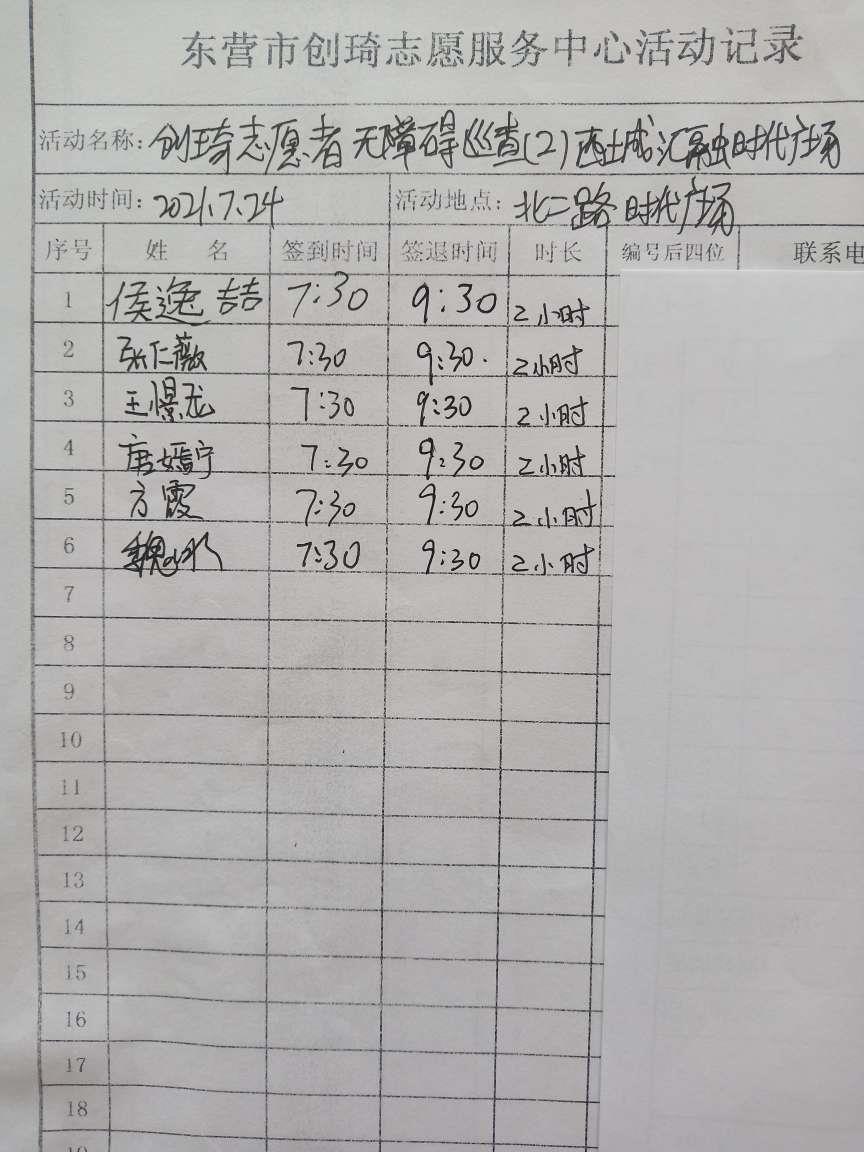 东营市创琦志愿服务中心活动记录
活动名称: 创琦志愿者无障碍巡查(2)西城汇融时代广场
活动时间: 2021.7.24 活动地点: 北二路时代广场
序号 姓名 签到时间 签退时间 时长 编号后四位 联系电
1 侯逸喆 7:30 9:30 2小时
2 张仁薇 7:30 9:30. 2小时
3 王憬龙 7:30 9:30 2小时
4 唐嫣宁 7:30 9:30 2小时
5 方霞 7:30 9:30 2小时
6 魏 7:30 9:30 2小时
7
8
9
10
11
12
13
14
15
16
17
18
19